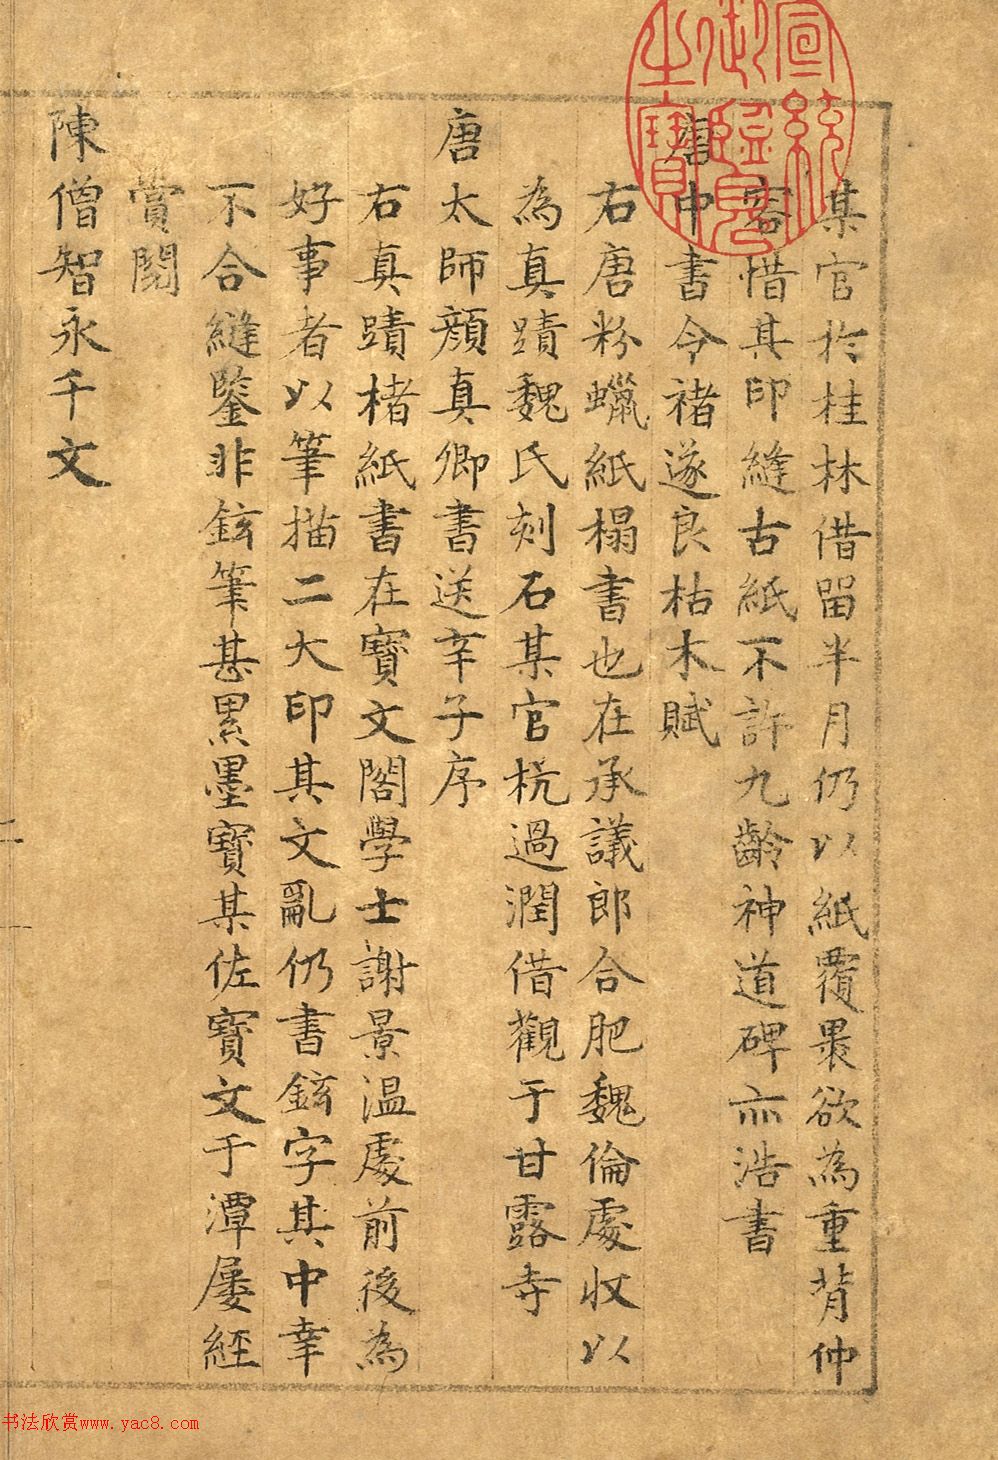 某官於桂林借留半月仍以紙覆褁欲為重背仲
容惜其印縫古紙不許九齡神道碑亦浩書
唐中書令褚遂良枯木賦
右唐粉蠟紙榻書也在承議郎合肥魏倫處収以
為真蹟魏氏刻石某官杭過潤借觀于甘露寺
唐太師顏真卿書送辛子序
右真蹟楮紙書在寶文閣學士謝景温處前後為
好事者以筆描二大印其文亂仍書鉉字其中幸
不合縫鑒非鉉筆甚累墨寶某佐寶文于潭屡經
賞閱
陳僧智永千文
宣統御覽之寶
书法欣赏www.yac8.com